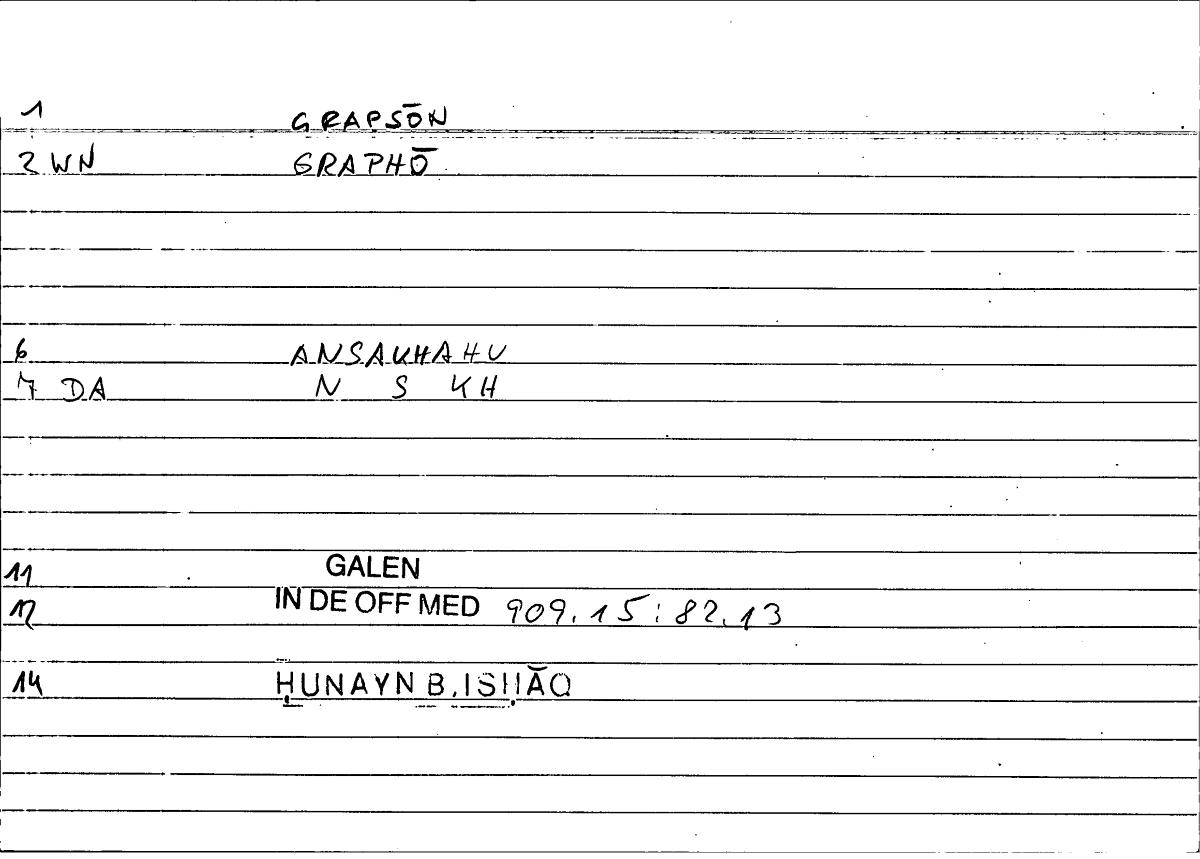 1 GRAPSŌN
2 WN GRAPHŌ
6 ANSAKHAHU
7 DA N S KH
11 GALEN
12 IN DE OFF MED 909.15:82.13
14 ḤUNAYN B.ISḤĀQ